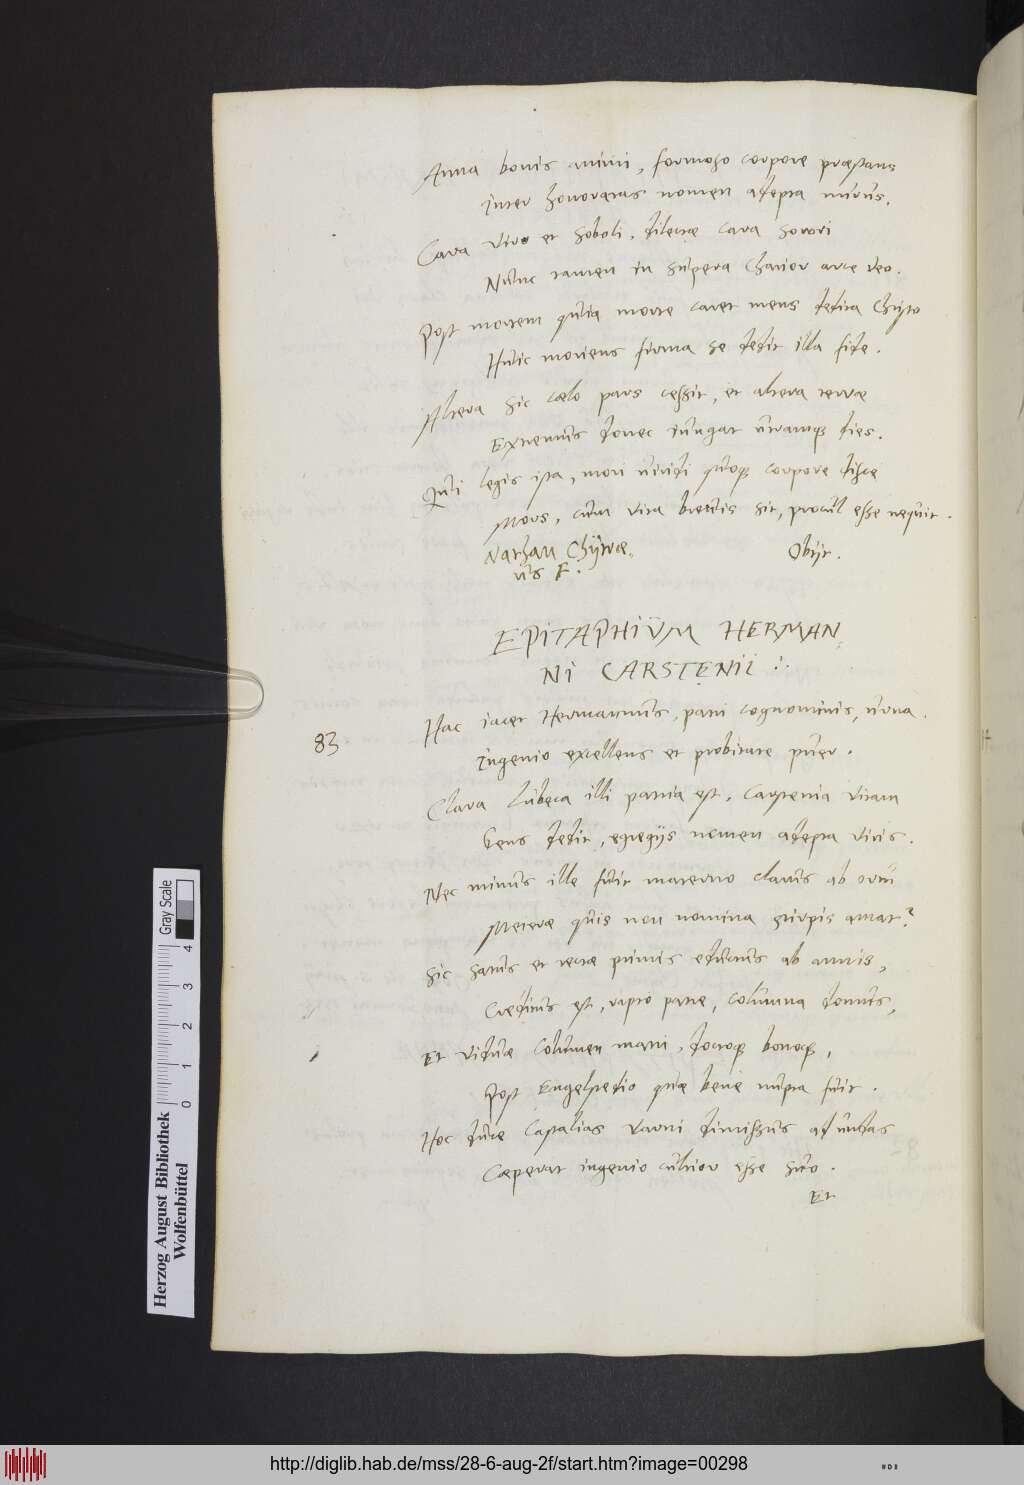 Anna bonis animi, formoso corpore præstans
Inter honoratas nomen adepta nurus.
Cara viro et soboli, dilectæ cara sorori
Nunc tamen in supera charior arce deo.
Post mortem quia morte caret mens dedita Christo
Huic moriens firma se dedit illa fide.
Altera sic cælo pars cessit, et altera terræ
Extremus donec iungat utramq dies.
Qui legis ista, mori viuidi quoq corpore disce
Mors, cum vita breuis sit, procul esse nequit.
Nathan Chÿtræ
us F.
Obijt.
EPITAPHIUM HERMAN
NI CARSTENII
83
Hac iacet Hermannus, patri cognominis, urna.
Ingenio excellens et probitate puer.
Clara Lubeca illi patria est, Carstenia vitam
Gens dedit, egregijs nomen adepta viris.
Nec minus ille fuit materno clarus ab ortu
Meteræ quis non nomina stirpis amat?
Sic satus et recte primis eductus ab annis,
Creditus est, rapto patre, columna domus,
Et viduæ columen matri, doctoq bonoq,
Post Engelstedio quæ bene nupta fuit.
Hoc duce Castalias Varni dimissus ad undas
Cæperat ingenio cultior esse suo.
Et
Herzog August Bibliothek
Wolfenbüttel
0 1 2 3 4
Gray Scale
http://diglib.hab.de/mss/28-6-aug-2f/start.htm?image=00298